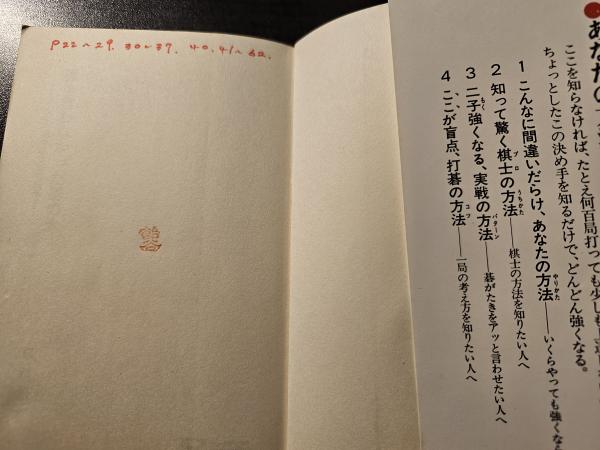 P22~29. 30~37. 40, 41~62.
あなたの
ここを知らなければ、たとえ何百局打っても少しも
ちょっとしたこの決め手を知るだけで、どんどん強くなる。
1 こんなに間違いだらけ、あなたの方法やりかた――いくらやっても強くなら
2 知って驚く棋士プロの方法うちかた――棋士の方法を知りたい人へ
3 二子もく強くなる、実戦の方法パターン――碁がたきをアッと言わせたい人へ
4 ここが盲点、打碁の方法コツ――一局の考え方を知りたい人へ